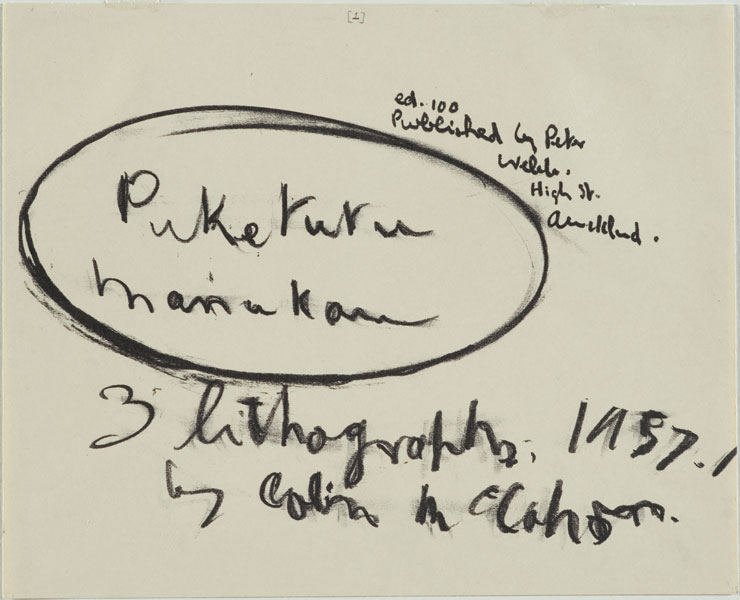 [1]
ed. 100
Published by Peter
Webb.
High St.
Auckland.
Puketutu
Manukau
3 lithographs. 1957.
by Colin McCahon.